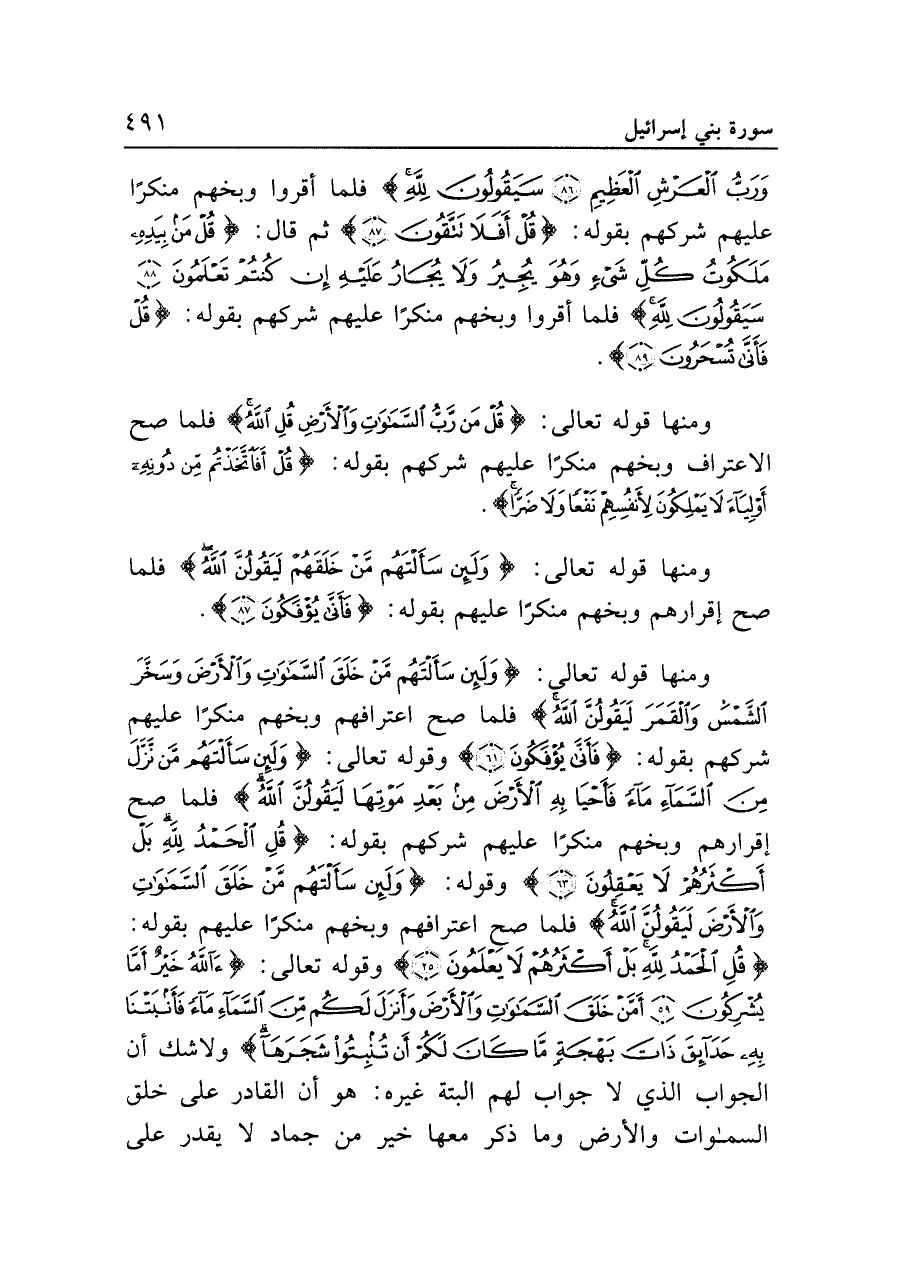 سورة بني إسرائيل ٤٩١
وَرَبُّ ٱلْعَرْشِ ٱلْعَظِيمِ ﴿٨٦﴾ سَيَقُولُونَ لِلَّهِۚ﴾ فلما أقروا وبخهم منكرًا
عليهم شركهم بقوله: ﴿قُلْ أَفَلَا تَتَّقُونَ ﴿٨٧﴾﴾ ثم قال: ﴿قُلْ مَنۢ بِيَدِهِۦ
مَلَكُوتُ كُلِّ شَىْءٍ وَهُوَ يُجِيرُ وَلَا يُجَارُ عَلَيْهِ إِن كُنتُمْ تَعْلَمُونَ ﴿٨٨﴾
سَيَقُولُونَ لِلَّهِۚ﴾ فلما أقروا وبخهم منكرًا عليهم شركهم بقوله: ﴿قُلْ
فَأَنَّىٰ تُسْحَرُونَ ﴿٨٩﴾﴾.
ومنها قوله تعالى: ﴿قُلْ مَن رَّبُّ ٱلسَّمَٰوَٰتِ وَٱلْأَرْضِ قُلِ ٱللَّهُۚ﴾ فلما صح
الاعتراف وبخهم منكرًا عليهم شركهم بقوله: ﴿قُلْ أَفَٱتَّخَذْتُم مِّن دُونِهِۦٓ
أَوْلِيَآءَ لَا يَمْلِكُونَ لِأَنفُسِهِمْ نَفْعًا وَلَا ضَرًّاۚ﴾.
ومنها قوله تعالى: ﴿وَلَئِن سَأَلْتَهُم مَّنْ خَلَقَهُمْ لَيَقُولُنَّ ٱللَّهُۖ﴾ فلما
صح إقرارهم وبخهم منكرًا عليهم بقوله: ﴿فَأَنَّىٰ يُؤْفَكُونَ ﴿٨٧﴾﴾.
ومنها قوله تعالى: ﴿وَلَئِن سَأَلْتَهُم مَّنْ خَلَقَ ٱلسَّمَٰوَٰتِ وَٱلْأَرْضَ وَسَخَّرَ
ٱلشَّمْسَ وَٱلْقَمَرَ لَيَقُولُنَّ ٱللَّهُۚ﴾ فلما صح اعترافهم وبخهم منكرًا عليهم
شركهم بقوله: ﴿فَأَنَّىٰ يُؤْفَكُونَ ﴿٦١﴾﴾ وقوله تعالى: ﴿وَلَئِن سَأَلْتَهُم مَّن نَّزَّلَ
مِنَ ٱلسَّمَآءِ مَآءً فَأَحْيَا بِهِ ٱلْأَرْضَ مِنۢ بَعْدِ مَوْتِهَا لَيَقُولُنَّ ٱللَّهُۚ﴾ فلما صح
إقرارهم وبخهم منكرًا عليهم شركهم بقوله: ﴿قُلِ ٱلْحَمْدُ لِلَّهِۚ بَلْ
أَكْثَرُهُمْ لَا يَعْقِلُونَ ﴿٦٣﴾﴾ وقوله: ﴿وَلَئِن سَأَلْتَهُم مَّنْ خَلَقَ ٱلسَّمَٰوَٰتِ
وَٱلْأَرْضَ لَيَقُولُنَّ ٱللَّهُۚ﴾ فلما صح اعترافهم وبخهم منكرًا عليهم بقوله:
﴿قُلِ ٱلْحَمْدُ لِلَّهِۚ بَلْ أَكْثَرُهُمْ لَا يَعْلَمُونَ ﴿٢٥﴾﴾ وقوله تعالى: ﴿ءَآللَّهُ خَيْرٌ أَمَّا
يُشْرِكُونَ ﴿٥٩﴾ أَمَّنْ خَلَقَ ٱلسَّمَٰوَٰتِ وَٱلْأَرْضَ وَأَنزَلَ لَكُم مِّنَ ٱلسَّمَآءِ مَآءً فَأَنۢبَتْنَا
بِهِۦ حَدَآئِقَ ذَاتَ بَهْجَةٍ مَّا كَانَ لَكُمْ أَن تُنۢبِتُوا۟ شَجَرَهَآۗ﴾ ولاشك أن
الجواب الذي لا جواب لهم البتة غيره: هو أن القادر على خلق
السمٰوات والأرض وما ذكر معها خير من جماد لا يقدر على